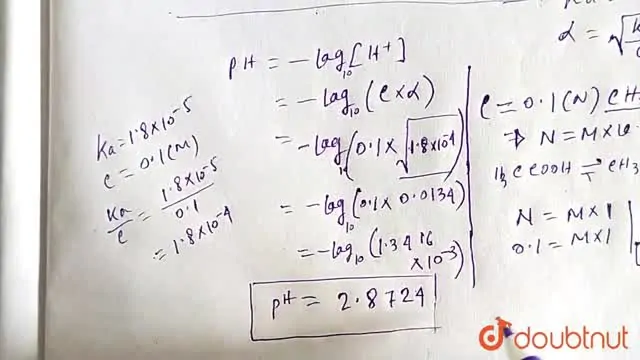 pH = -log₁₀[H⁺]
= -log₁₀(C×α)
= -log₁₀(0.1×√1.8×10⁻⁴)
= -log₁₀(0.1×0.0134)
= -log₁₀(1.3416×10⁻³)
pH = 2.8724
Ka = 1.8×10⁻⁵
C = 0.1(M)
Ka/C = 1.8×10⁻⁵/0.1
= 1.8×10⁻⁴
α = √K
C = 0.1(N) CH
⇒ N = M×
COOH ⇌ CH₃
N = M×1
0.1 = M×1
doubtnut